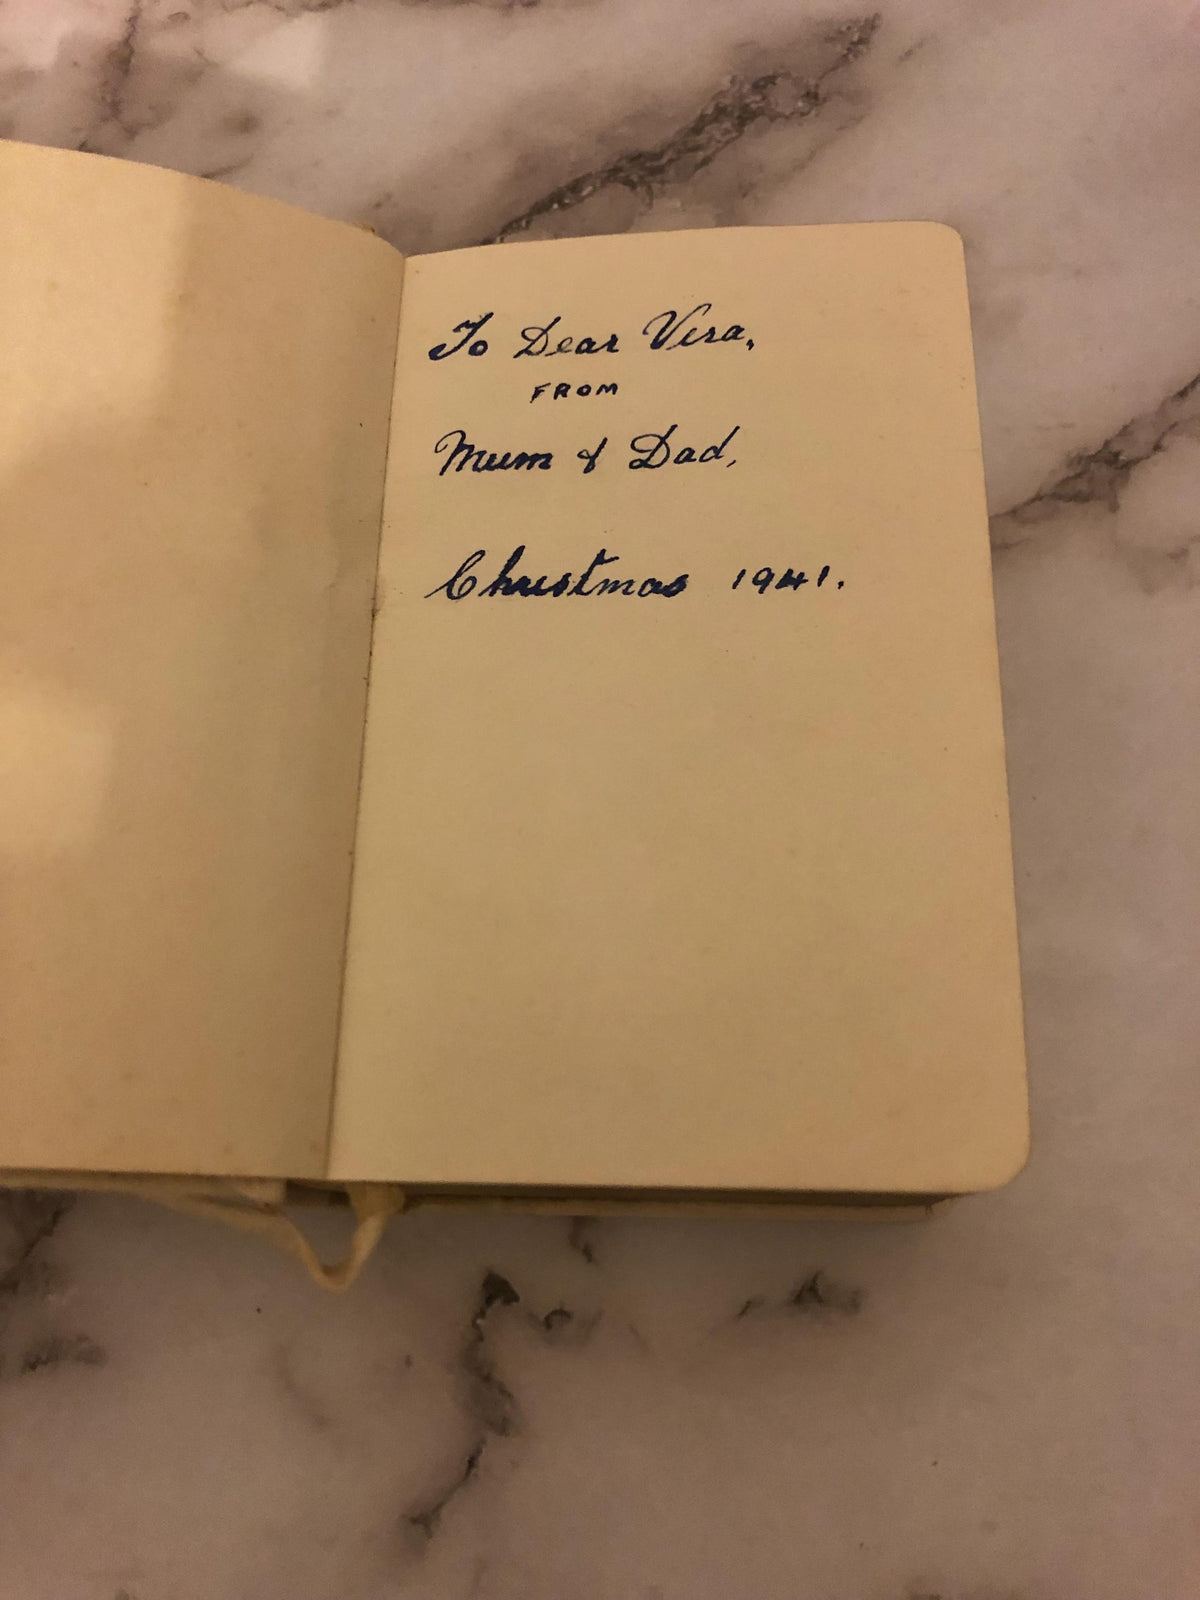 To Dear Vera,
FROM
Mum & Dad,
Christmas 1941.